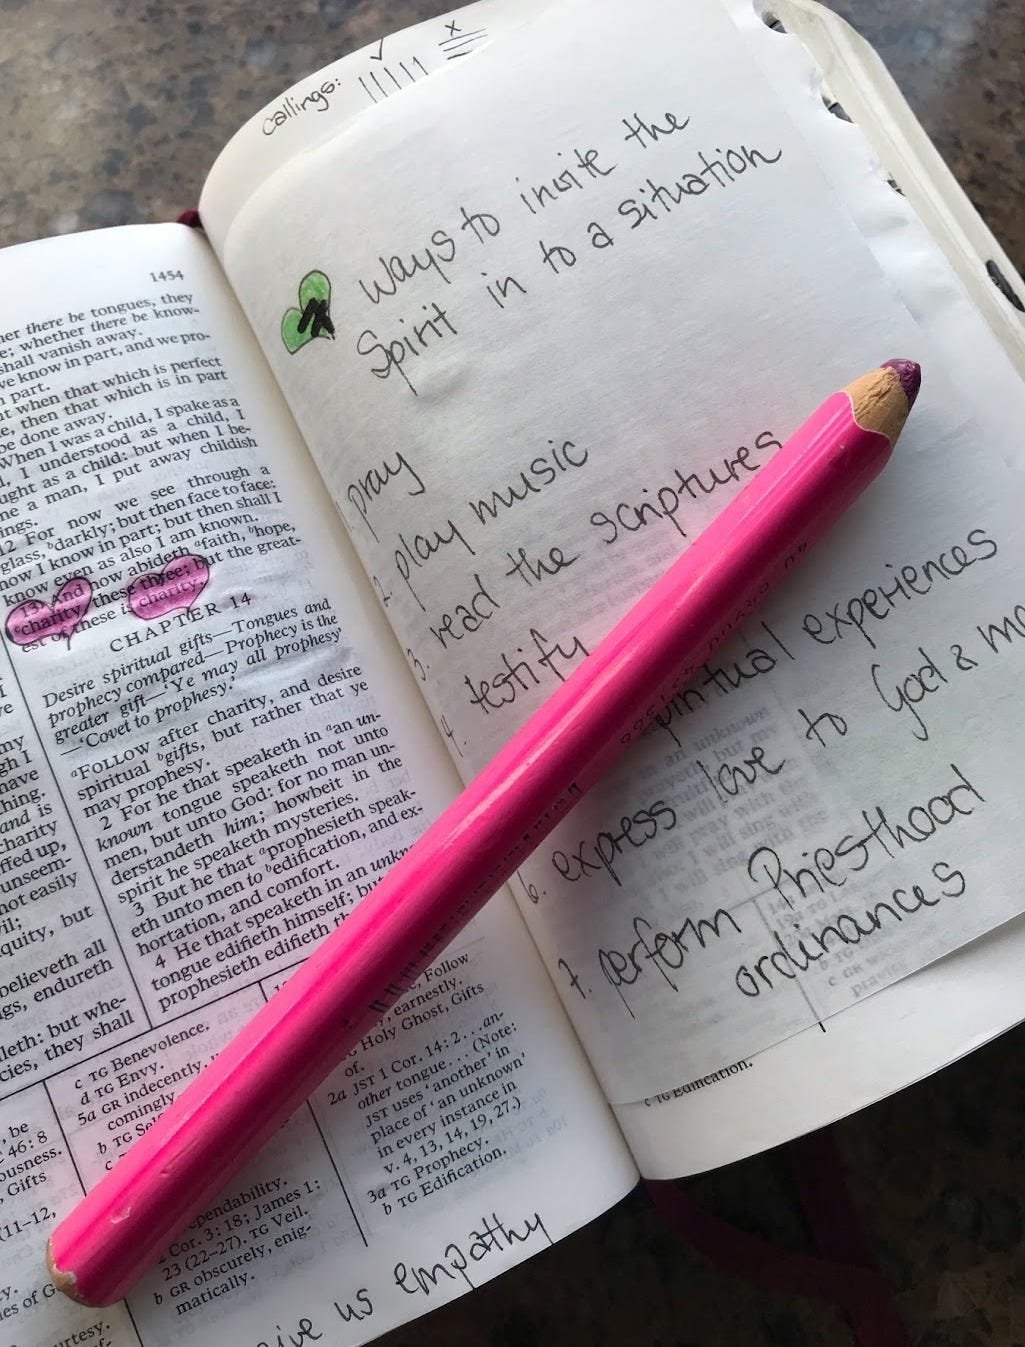 1454
her there be tongues, they
e; whether there be know-
shall vanish away.
ve know in part, and we pro-
part.
ut when that which is perfect
e, then that which is in part
be done away.
When I was a child, I spake as a
I understood as a child, I
ught as a child: but when I be-
ne a man, I put away childish
ings.
12 For now we see through a
glass, ᵇdarkly; but then face to face:
now I know in part; but then shall I
know even as also I am known.
13 And now abideth ᵃfaith, ᵇhope,
ᶜcharity, these three; but the great-
est of these is charity.
CHAPTER 14
Desire spiritual gifts—Tongues and
prophecy compared—Prophecy is the
greater gift—'Ye may all prophesy
—'Covet to prophesy.'
ᵃFOLLOW after charity, and desire
spiritual ᵇgifts, but rather that ye
may prophesy.
2 For he that speaketh in ᵃan un-
known tongue speaketh not unto
men, but unto God: for no man un-
derstandeth him; howbeit in the
spirit he speaketh mysteries.
3 But he that ᵃprophesieth speak-
eth unto men to ᵇedification, and ex-
hortation, and comfort.
4 He that speaketh in an unkn
tongue edifieth himself; bu
prophesieth edifieth
my
gh I
have
thing.
and is
charity
ffed up,
unseem-
not easily
vil;
quity, but
believeth all
gs, endureth
ileth: but whe-
cies, they shall
be
46:8
ousness.
Gifts
(11–12,
c TG Benevolence.
d TG Envy.
5a GR indecently,
comingly.
b TG
ependability.
Cor. 3:18; James 1:
23 (22–27). TG Veil.
b GR obscurely, enig-
matically.
Follow
earnestly.
Holy Ghost, Gifts
of.
2a JST 1 Cor. 14:2 . . . an-
other tongue . . . (Note:
JST uses 'another' in
place of 'an unknown'
in every instance in
v. 4, 13, 14, 19, 27.)
3a TG Prophecy.
b TG Edification.
us empathy
callings:
Ways to invite the
Spirit in to a situation
1. pray
2. play music
3. read the scriptures
4. testify
experiences
6. express love to God & 
7. perform Priesthood
ordinances
c TG Edification.